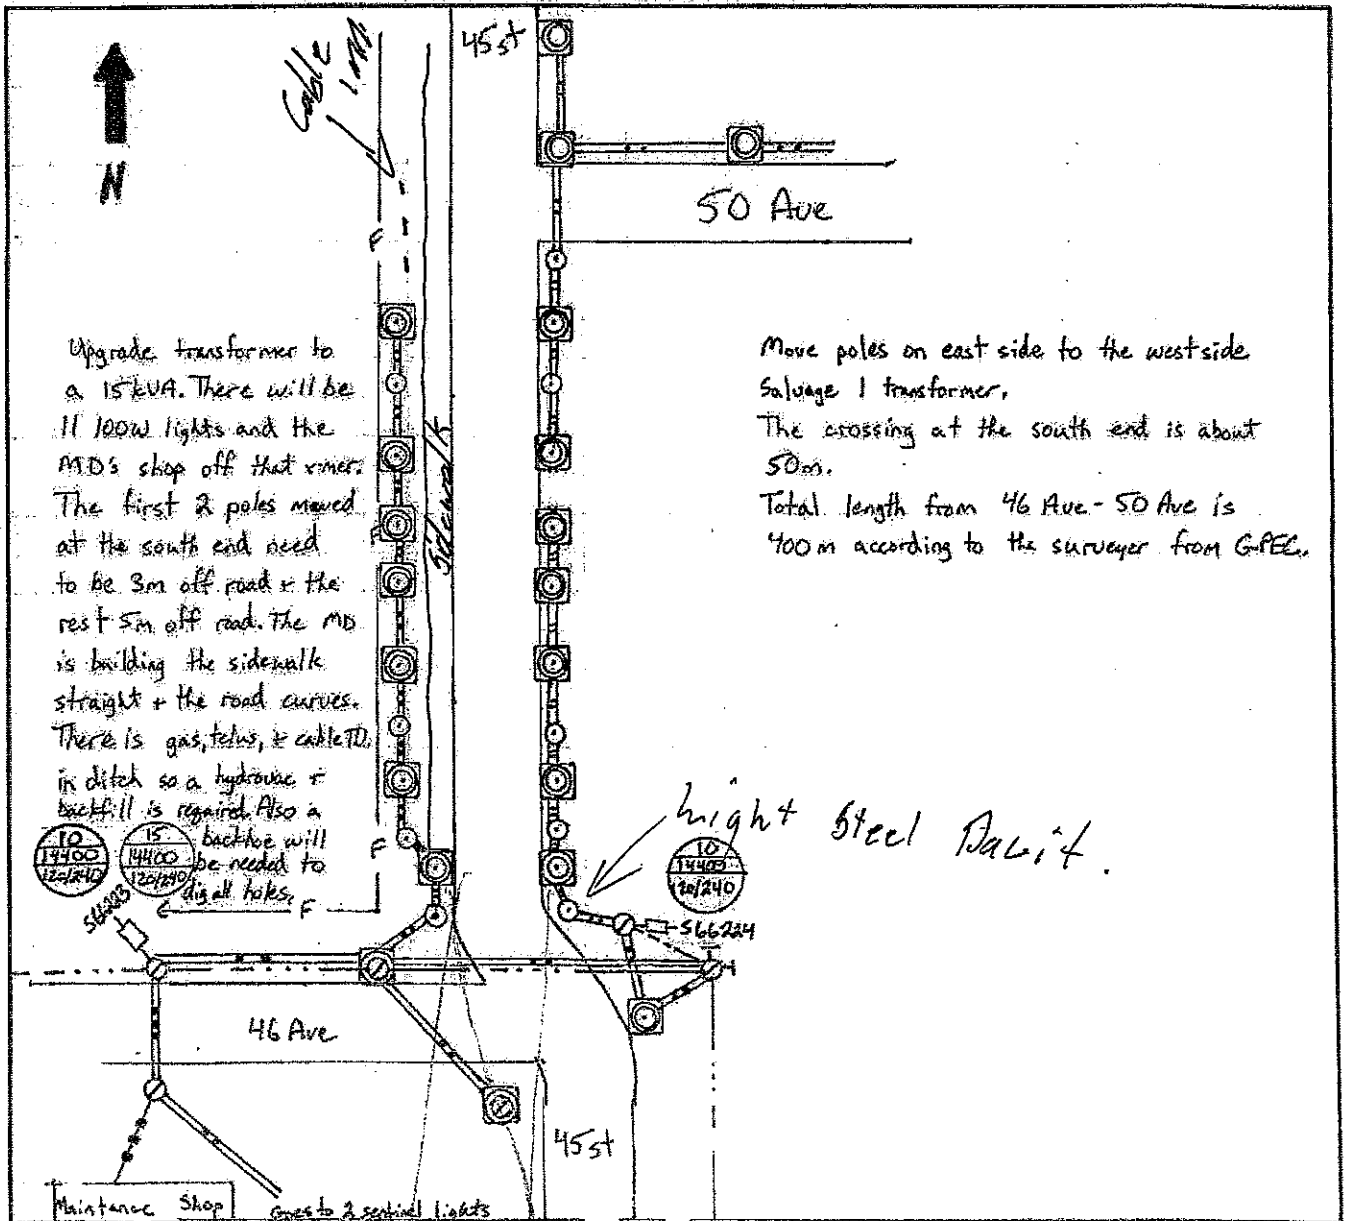 Cable
1.0M
45st
N
50 Ave
F
Upgrade transformer to
a 15 kVA. There will be
11 100w lights and the
MD's shop off that xmer.
The first 2 poles moved
at the south end need
to be 3m off road + the
rest 5m off road. The MD
is building the sidewalk
straight + the road curves.
There is gas, telus, + cable TV
in ditch so a hydrovac +
backfill is required. Also a
backhoe will
be needed to
dig all holes.
Sidewalk
F
F
F
Move poles on east side to the west side
Salvage 1 transformer.
The crossing at the south end is about
50m.
Total length from 46 Ave - 50 Ave is
400 m according to the surveyer from G-PEC.
10
14400
120/240
15
14400
120/240
S66223
Light Steel Davit.
10
14400
120/240
S66224
46 Ave
45st
Maintance Shop
Goes to 2 sentinel lights